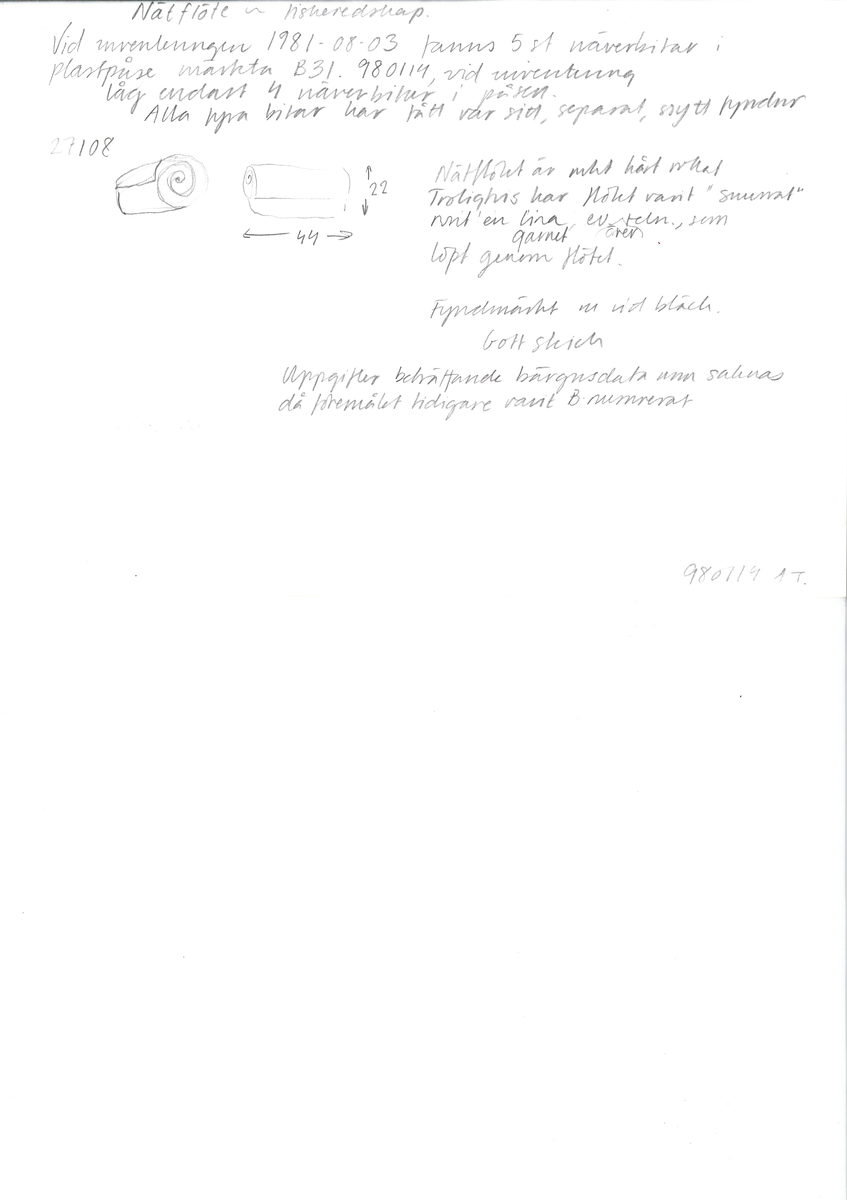 Nätflöte ~ fiskeredskap.
Vid inventeringen 1981-08-03 fanns 5 st näverbitar i
plastpåse märkta B31. 980114, vid inventering
låg endast 4 näverbitar i påsen.
Alla fyra bitar har fått var sitt, separat, nytt fyndnr
27108
Nätflötet är mkt hårt rullat
Troligtvis har flötet varit "snurrat"
runt en lina, ev. teln., som
garnet över
löpt genom flötet.
22
44
Fyndmärkt m vid bläck.
Gott skick
Uppgifter beträffande bärgnsdata mm saknas
då föremålet tidigare varit B-numrerat
980114 AT.